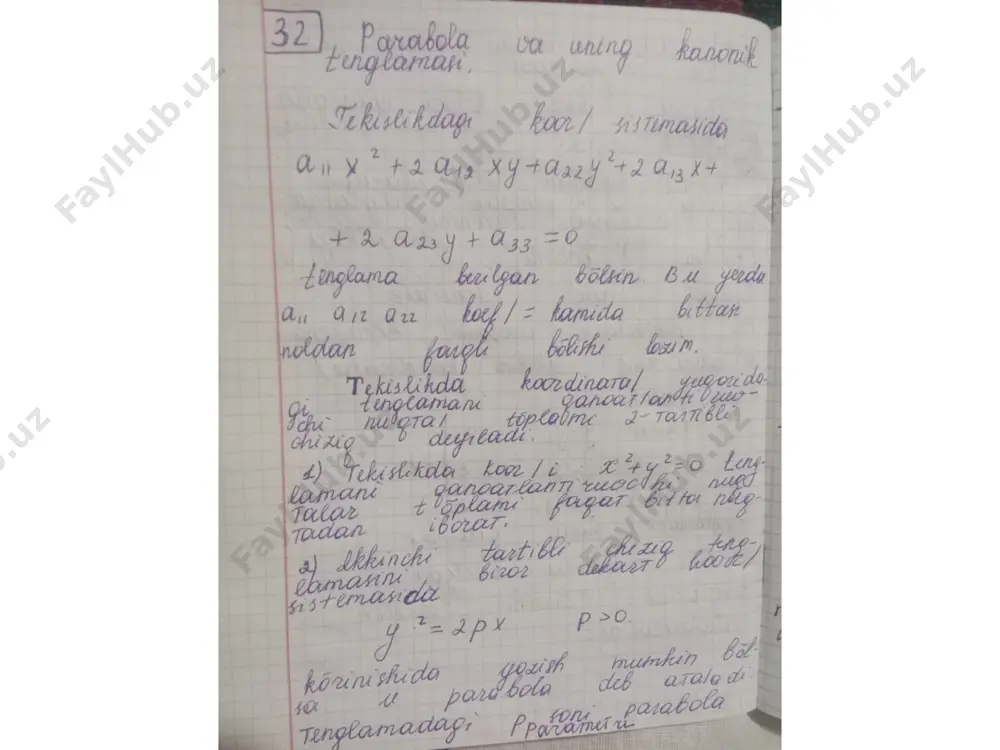 32 Parabola va uning kanonik
tenglamasi.
Tekislikdagi koor/ sistemasida
a₁₁ x² + 2 a₁₂ xy + a₂₂ y² + 2 a₁₃ x +
+ 2 a₂₃ y + a₃₃ = 0
tenglama berilgan bōlsin Bu yerda
a₁₁ a₁₂ a₂₂ koef/ = kamida bittasi
noldan farqli bōlishi lozim.
Tekislikda koordinata/ yuqorida-
gi tenglamani qanoatlantiruv-
chi nuqta/ tōplami 2-tartibli
chiziq deyiladi.
1) Tekislikda koor/i x² + y² = 0 teng-
lamani qanoatlantiruvchi nuq-
talar tōplami faqat bitta nuq-
tadan iborat.
2) Ikkinchi tartibli chiziq teng-
lamasini biror dekart koor/
sistemasida
y² = 2px p > 0.
kōrinishida yozish mumkin bōl-
sa u parabola deb ataladi
Tenglamadagi P soni parabola
parametri
FaylHub.uz
FaylHub.uz
FaylHub.uz
FaylHub.uz
FaylHub.uz
FaylHub.uz